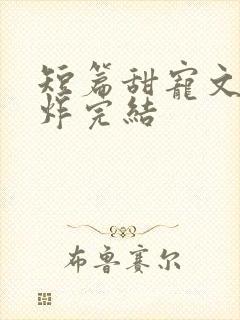 短篇甜寵文
炸完結
布鲁赛尔